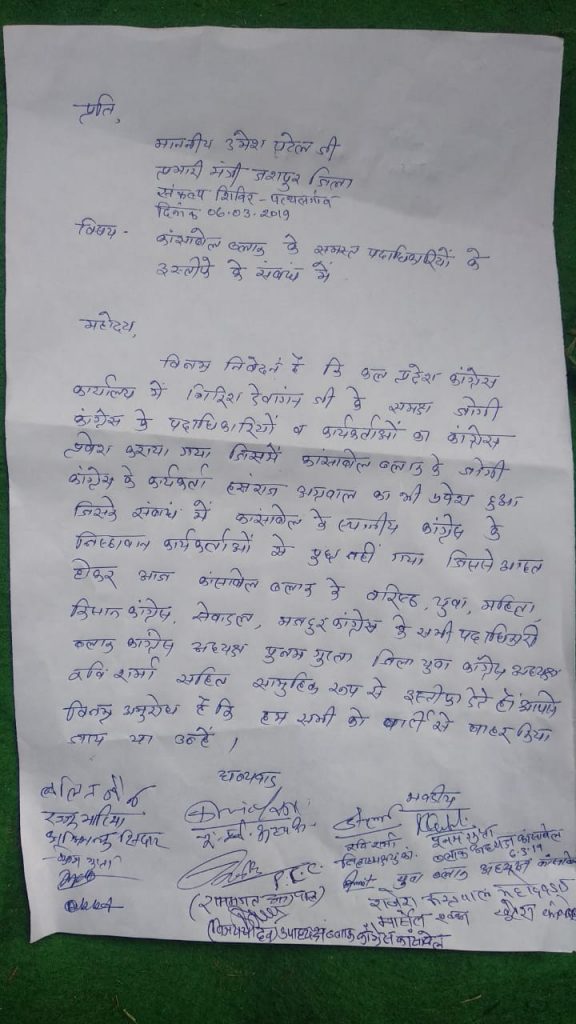 प्रति,
माननीय उमेश पटेल जी
प्रभारी मंत्री जशपुर जिला
संकल्प शिविर - पत्थलगांव
दिनांक 06.03.2019
विषय - कांसाबेल ब्लाक के समस्त पदाधिकारियों के
इस्तीफे के संबंध में
महोदय,
विनम्र निवेदन है कि कल प्रदेश कांग्रेस
कार्यालय में गिरिश देवांगन जी के समक्ष जोगी
कांग्रेस के पदाधिकारियों व कार्यकर्ताओं का कांग्रेस
प्रवेश कराया गया जिसमें कांसाबेल ब्लाक के जोगी
कांग्रेस के कार्यकर्ता हंसराज अग्रवाल का भी प्रवेश हुआ
जिसके संबंध में कांसाबेल के स्थानीय कांग्रेस के
निष्ठावान कार्यकर्ताओं से पुछा नहीं गया जिससे आहत
होकर आज कांसाबेल ब्लाक के वरिष्ठ, युवा, महिला,
किसान कांग्रेस, सेवादल, मजदुर कांग्रेस के सभी पदाधिकारी
ब्लाक कांग्रेस अध्यक्ष पुनम गुप्ता जिला युवा कांग्रेस अध्यक्ष
रवि शर्मा सहित सामुहिक रूप से इस्तीफा देते हैं। आपसे
विनम्र अनुरोध है कि हम सभी को पार्टी से बाहर किया
जाय या उन्हें।
धन्यवाद
भवदीय
रवि शर्मा पुनम गुप्ता
ब्लाक अध्यक्ष कांसाबेल
6.3.19
युवा ब्लाक अध्यक्ष कांसाबेल
P.C.C.
उपाध्यक्ष ब्लाक कांग्रेस कांसाबेल